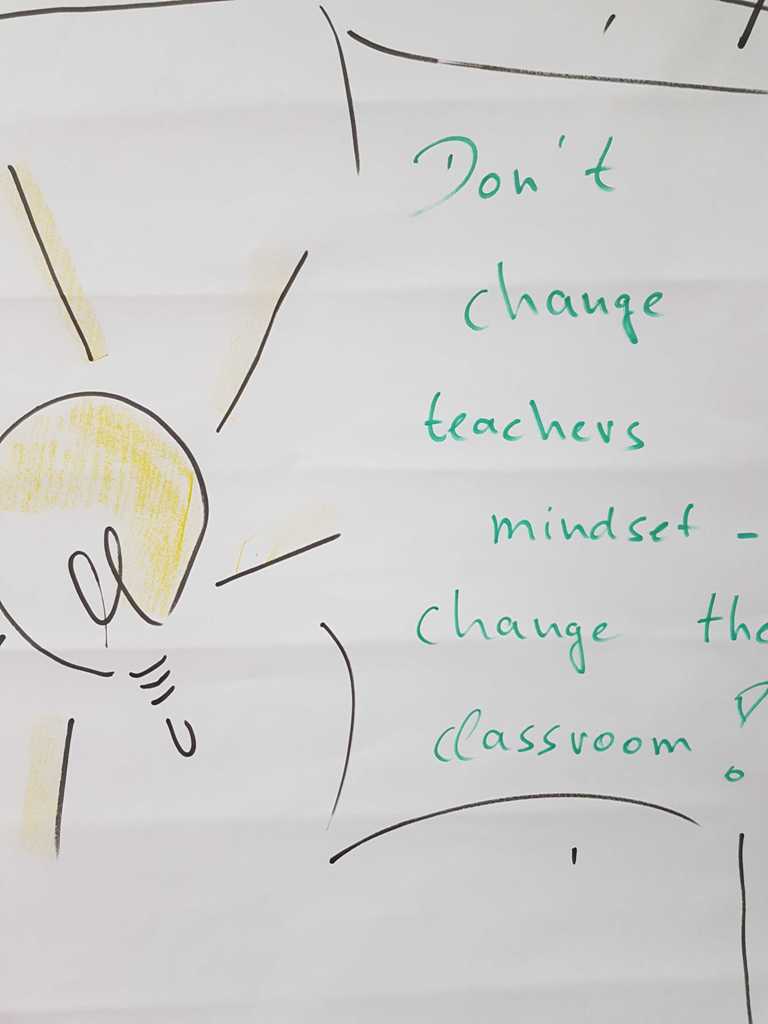 Don't
change
teachers
mindset -
change the
classroom!